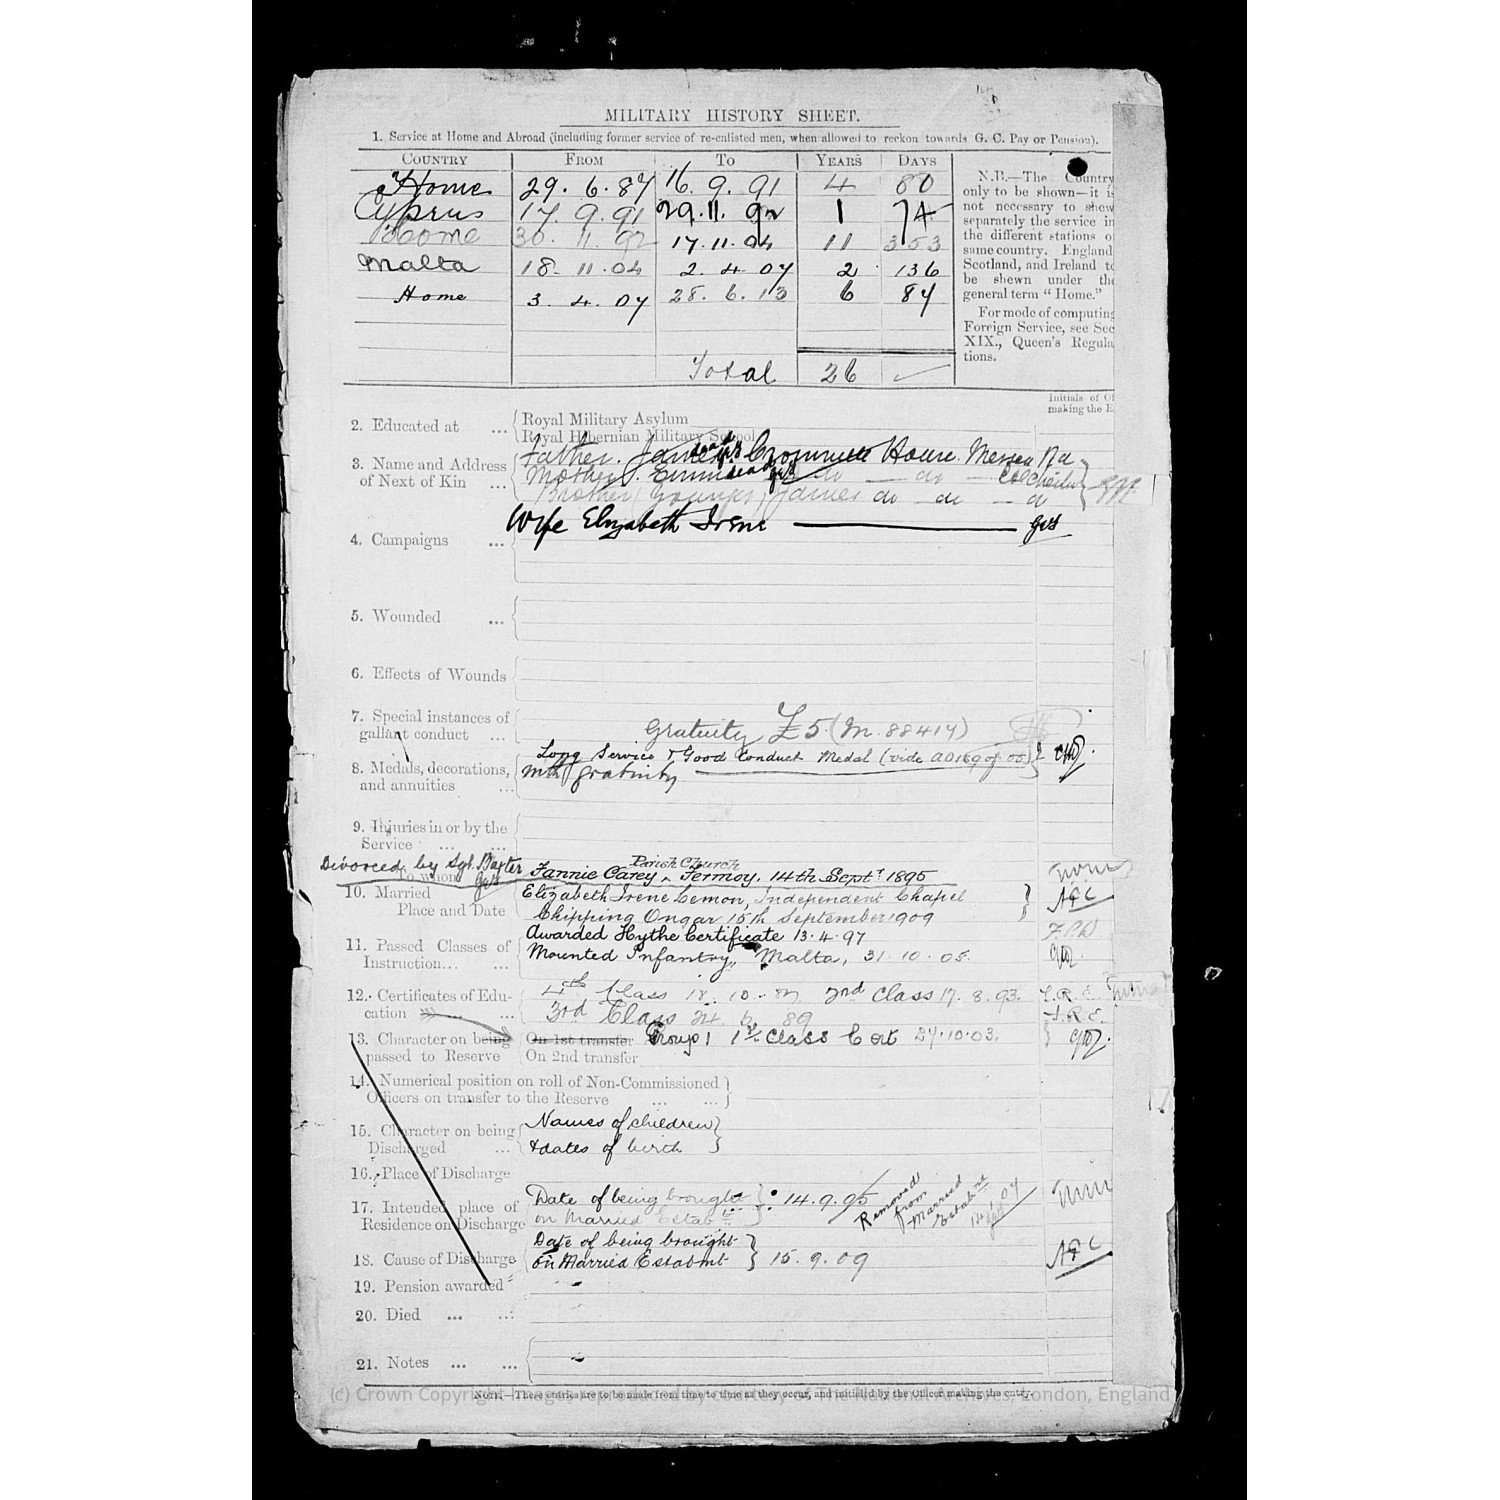 MILITARY HISTORY SHEET.
1. Service at Home and Abroad (including former service of re-enlisted men, when allowed to reckon towards G. C. Pay or Pension).
COUNTRY FROM TO YEARS DAYS
Home 29. 6. 87 16. 9. 91 4 80
Cyprus 17. 9. 91 29. 11. 92 1 74
Home 30. 11. 92 17. 11. 04 11 353
Malta 18. 11. 04 2. 4. 07 2 136
Home 3. 4. 07 28. 6. 13 6 87
Total 26
N.B.—The Country
only to be shown—it is
not necessary to show
separately the service in
the different stations of
same country. England
Scotland, and Ireland to
be shewn under the
general term "Home."
For mode of computing
Foreign Service, see Sec
XIX., Queen's Regula
tions.
Initials of Of
making the E
2. Educated at ... Royal Military Asylum
Royal Hibernian Military School
3. Name and Address of Next of Kin ... Father. James House. Mersea Rd
Mother. Emma dead do — do — Colchester
Brother (younger) James do — do — do
Wife Elizabeth Irene
4. Campaigns ...
5. Wounded ...
6. Effects of Wounds
7. Special instances of gallant conduct ...
Gratuity £5 (M. 88417)
8. Medals, decorations, and annuities ...
Long Service & Good Conduct Medal (vide AO 169 of 05)
with gratuity
9. Injuries in or by the Service ... ...
Divorced by Sgt. Baxter
To whom
10. Married
Place and Date
Fannie Carey, Parish Church Fermoy, 14th Sept. 1895
Elizabeth Irene Lemon, Independent Chapel
Chipping Ongar 15th September 1909
11. Passed Classes of Instruction...
Awarded Hythe Certificate 13.4.97
Mounted Infantry, Malta, 31.10.05.
12. Certificates of Education ...
4th Class 18.10.87 2nd Class 17.8.93.
3rd Class 24.6.89
13. Character on being passed to Reserve
On 1st transfer Group 1 1st Class Cert 27.10.03.
On 2nd transfer
14. Numerical position on roll of Non-Commissioned
Officers on transfer to the Reserve ... ...
15. Character on being Discharged ...
Names of children
& dates of birth
16. Place of Discharge
17. Intended place of Residence on Discharge
Date of being brought
on Married Estabt : 14.9.95
Removed
from
Married
Estabt
18. Cause of Discharge
Date of being brought
on Married Estabmt 15.9.09
19. Pension awarded
20. Died ... ...
21. Notes ... ...
NOTE.—These entries are to be made from time to time as they occur, and initialled by the Officer making the entry.
(c) Crown Copyright Images reproduced by courtesy of The National Archives, London, England